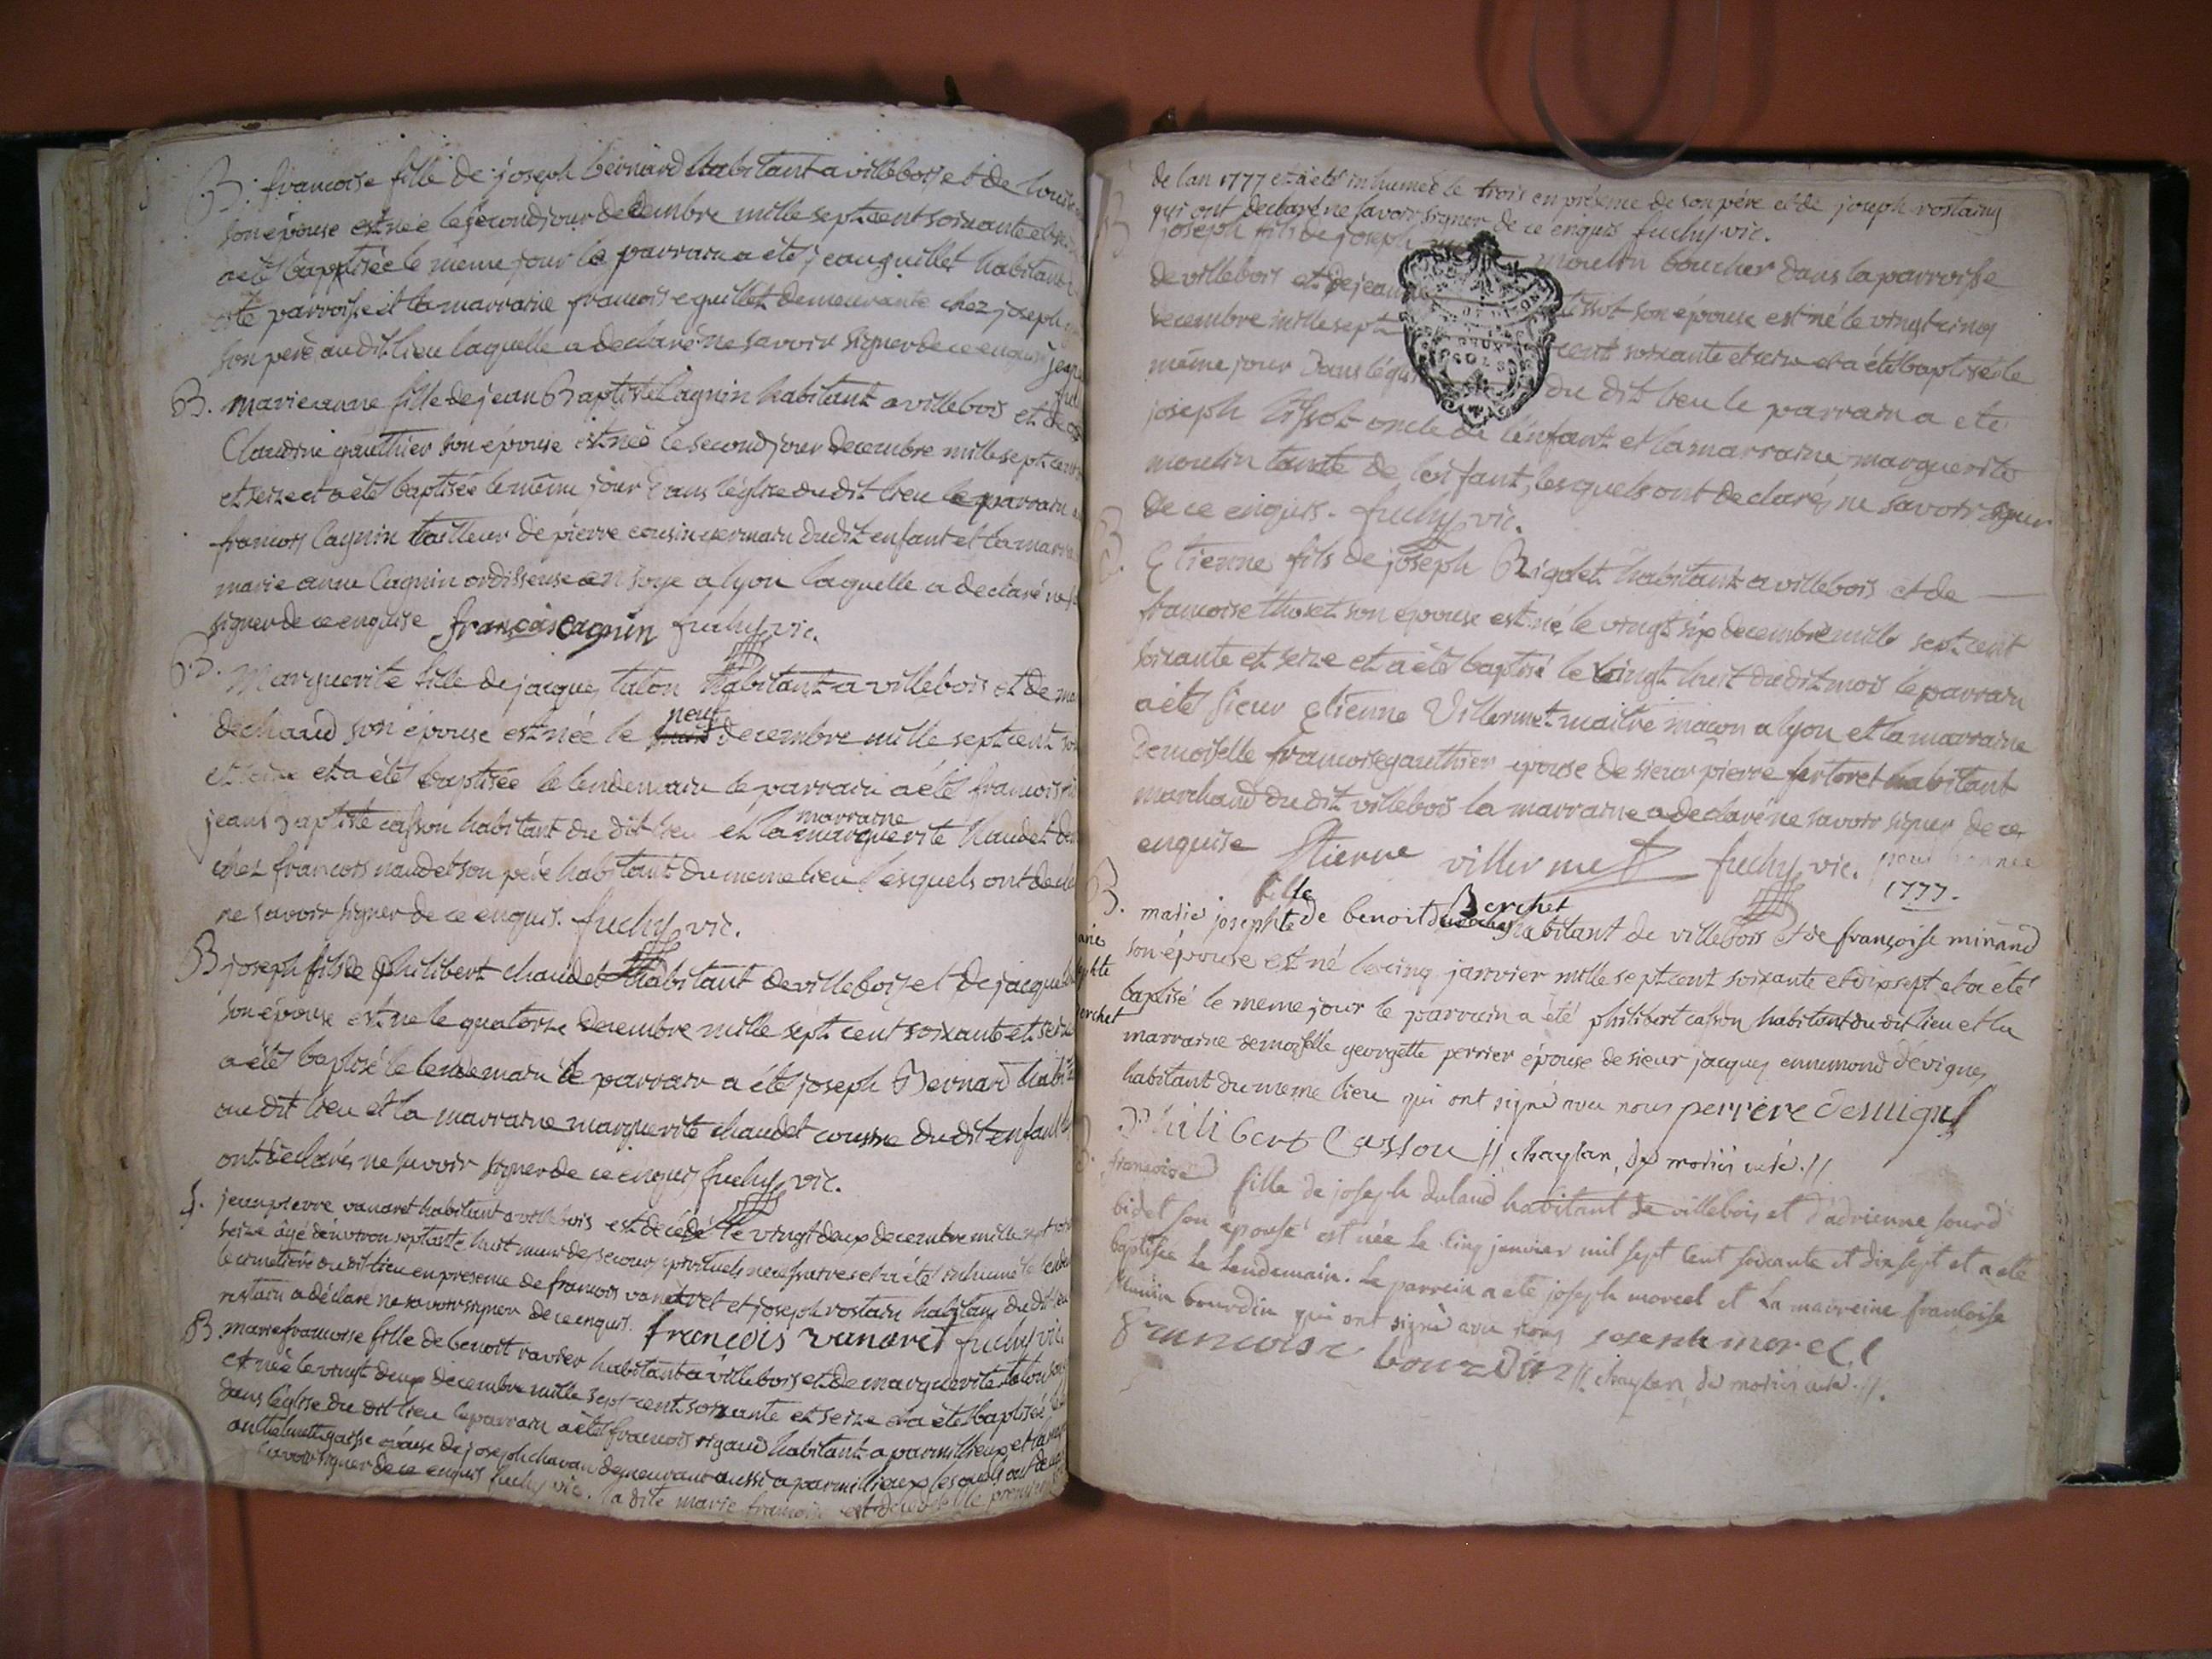 B. francoise fille de joseph bernard habitant a villebois et de louise
son épouse est née le second jour de decembre mille sept cent soixante et seize
a été baptisée le même jour le parrain a été jean guillet habitant
cete parroisse et la marraine francoise guillet demeurante chez joseph
son pere au dit lieu laquelle a declaré ne savoir signer de ce enquise jean
B. marie anne fille de jean Baptiste Cagnin habitant a villebois et de
Claudine gauthier son épouse est née le second jour decembre mille sept cent
et seize et a été baptisée le même jour dans léglise du dit lieu le parrain a
francois Cagnin tailleur de pierre cousin germain du dit enfant et la marra
marie anne Cagnin ordisseuse en soye a lyon laquelle a declaré ne s
signer de ce enquise françois cagnin fuchy vic.
B. Marguerite fille de jacques talon habitant a villebois et de ma
dechaud son épouse est née le neuf decembre mille sept cent so
et seize et a été baptisée le lendemain le parrain a été francois
jean Baptiste casson habitant du dit lieu et la marraine marguerite Naudet dem
chez francois naudet son pére habitant du meme lieu lesquels ont decla
ne savoir signer de ce enquis. fuchy vic.
B joseph fils de philibert chaudet habitant de villebois et de jacque
son épouse est né le quatorze decembre mille sept cent soixante et seize
a été baptisé le lendemain le parrain a été joseph Bernard habit
au dit lieu et la marraine marguerite chaudet cousine du dit enfant
ont declarés ne savoir signer de ce enquis fuchy vic.
S. jean pierre vanaret habitant a villebois est décédé le vingt deux decembre mille sept
seize âgé d'environ septante huit muni des secours spirituels necessaires et a été inhumé le lende
le cimetiére du dit lieu en presence de francois vanaret et joseph rostain habitans du dit lieu
rostain a déclaré ne savoir signer de ce enquis. françois vanaret fuchy vic
B marie francoise fille de benoit ravier habitant a villebois et de marguerite talon son
et née le vingt deux decembre mille sept cent soixante et seize et a été baptisée le
dans léglise du dit lieu le parrain a été francois rigaud habitant a parmillieux et la mar
anthelmette gaisse épouse de joseph chavan demeurant aussi a parmillieux lesquels ont declar
savoir signer de ce enquis fuchy vic. la dite marie francoise est décédée le premier
de lan 1777 et a été inhumée le trois en présence de son pére et de joseph rostaing
qui ont declaré ne savoir signer de ce enquis fuchy vic.
B joseph fils de joseph moulin boucher dans la parroisse
de villebois et de jeanne tissot son épouse est né le vingt cinq
decembre mille sept cent soixante et seize et a été baptisé le
même jour dans léglise du dit lieu le parrain a été
joseph tissot oncle de l'enfant et la marraine marguerite
moulin tante de l'enfant, lesquels ont declarés ne savoir signer
de ce enquis. fuchy vic.
B. Etienne fils de joseph Rigolet habitant a villebois et de
francoise thoset son épouse est né le vingt six decembre mile sept cent
soixante et seize et a été baptisé le vingt huit du dit mois le parrain
a été sieur etienne Villermet maitre maçon a lyon et la marraine
demoiselle francoise gauthier épouse de sieur pierre fertoret habitant
marchand du dit villebois la marraine a declaré ne savoir signer de ce
enquise Etienne villermet fuchy vic. pour lannée
1777.
B. marie josephte fille de benoit Berchet habitant de villebois et de françoise minand
son épouse est né le cinq janvier mille sept cent soixante et dixsept et a été
baptisé le meme jour le parrain a été philibert casson habitant du dit lieu et la
marraine demoiselle georgette perrier épouse de sieur jacques ennemond dévignes
habitant du meme lieu qui ont signé avec nous perrière desvignes
Philibert Casson // chaylan, de modieu curé. //
B. françoise fille de joseph duland habitant de villebois et d'adrienne sourd
bidet son épouse est née le cinq janvier mil sept cent soixante et dixsept et a eté
baptisée le lendemain. le parrein a eté joseph morcel et la marreine francoise
bourdin qui ont signé avec nous joseph morell
francoise bourdin // chaylan de modieu curé. //.